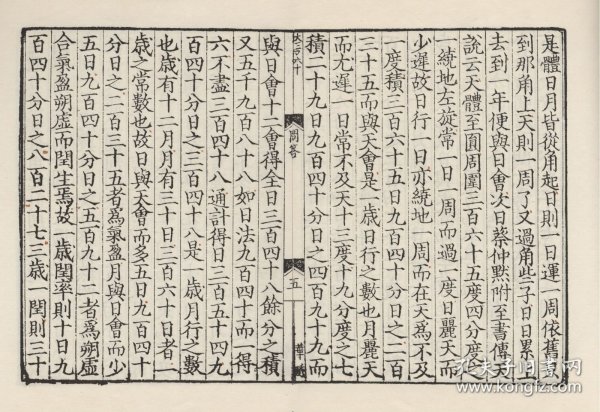 是體日月皆從角起日則一日運一周依舊
到那角上天則一周了又過角些子日日累
去到一年便與日會次日蔡仲黙附至書傳天
說云天體至圓周圍三百六十五度四分度之
一繞地左旋常一日一周而過一度日麗天而
少遲故日行一日亦繞地一周而在天爲不及
一度積三百六十五日九百四十分日之二百
三十五而與天會是一歲日行之數也月麗天
而尤遲一日常不及天十三度十九分度之七
積二十九日九百四十分日之四百九十九而
五
與日會十二會得全日三百四十八餘分之積
又五千九百八十八如日法九百四十而一得
六不盡三百四十八通計得日三百五十四九
百四十分日之三百四十八是一歲月行之數
也歲有十二月月有三十日三百六十日者一
歲之常數也故日與天會而多五日九百四十
分日之二百三十五者爲氣盈月與日會而少
五日九百四十分日之五百九十二者爲朔虛
合氣盈朔虛而閏生焉故一歲閏率則十日九
百四十分日之八百二十七三歲一閏則三十
孔夫子旧书网